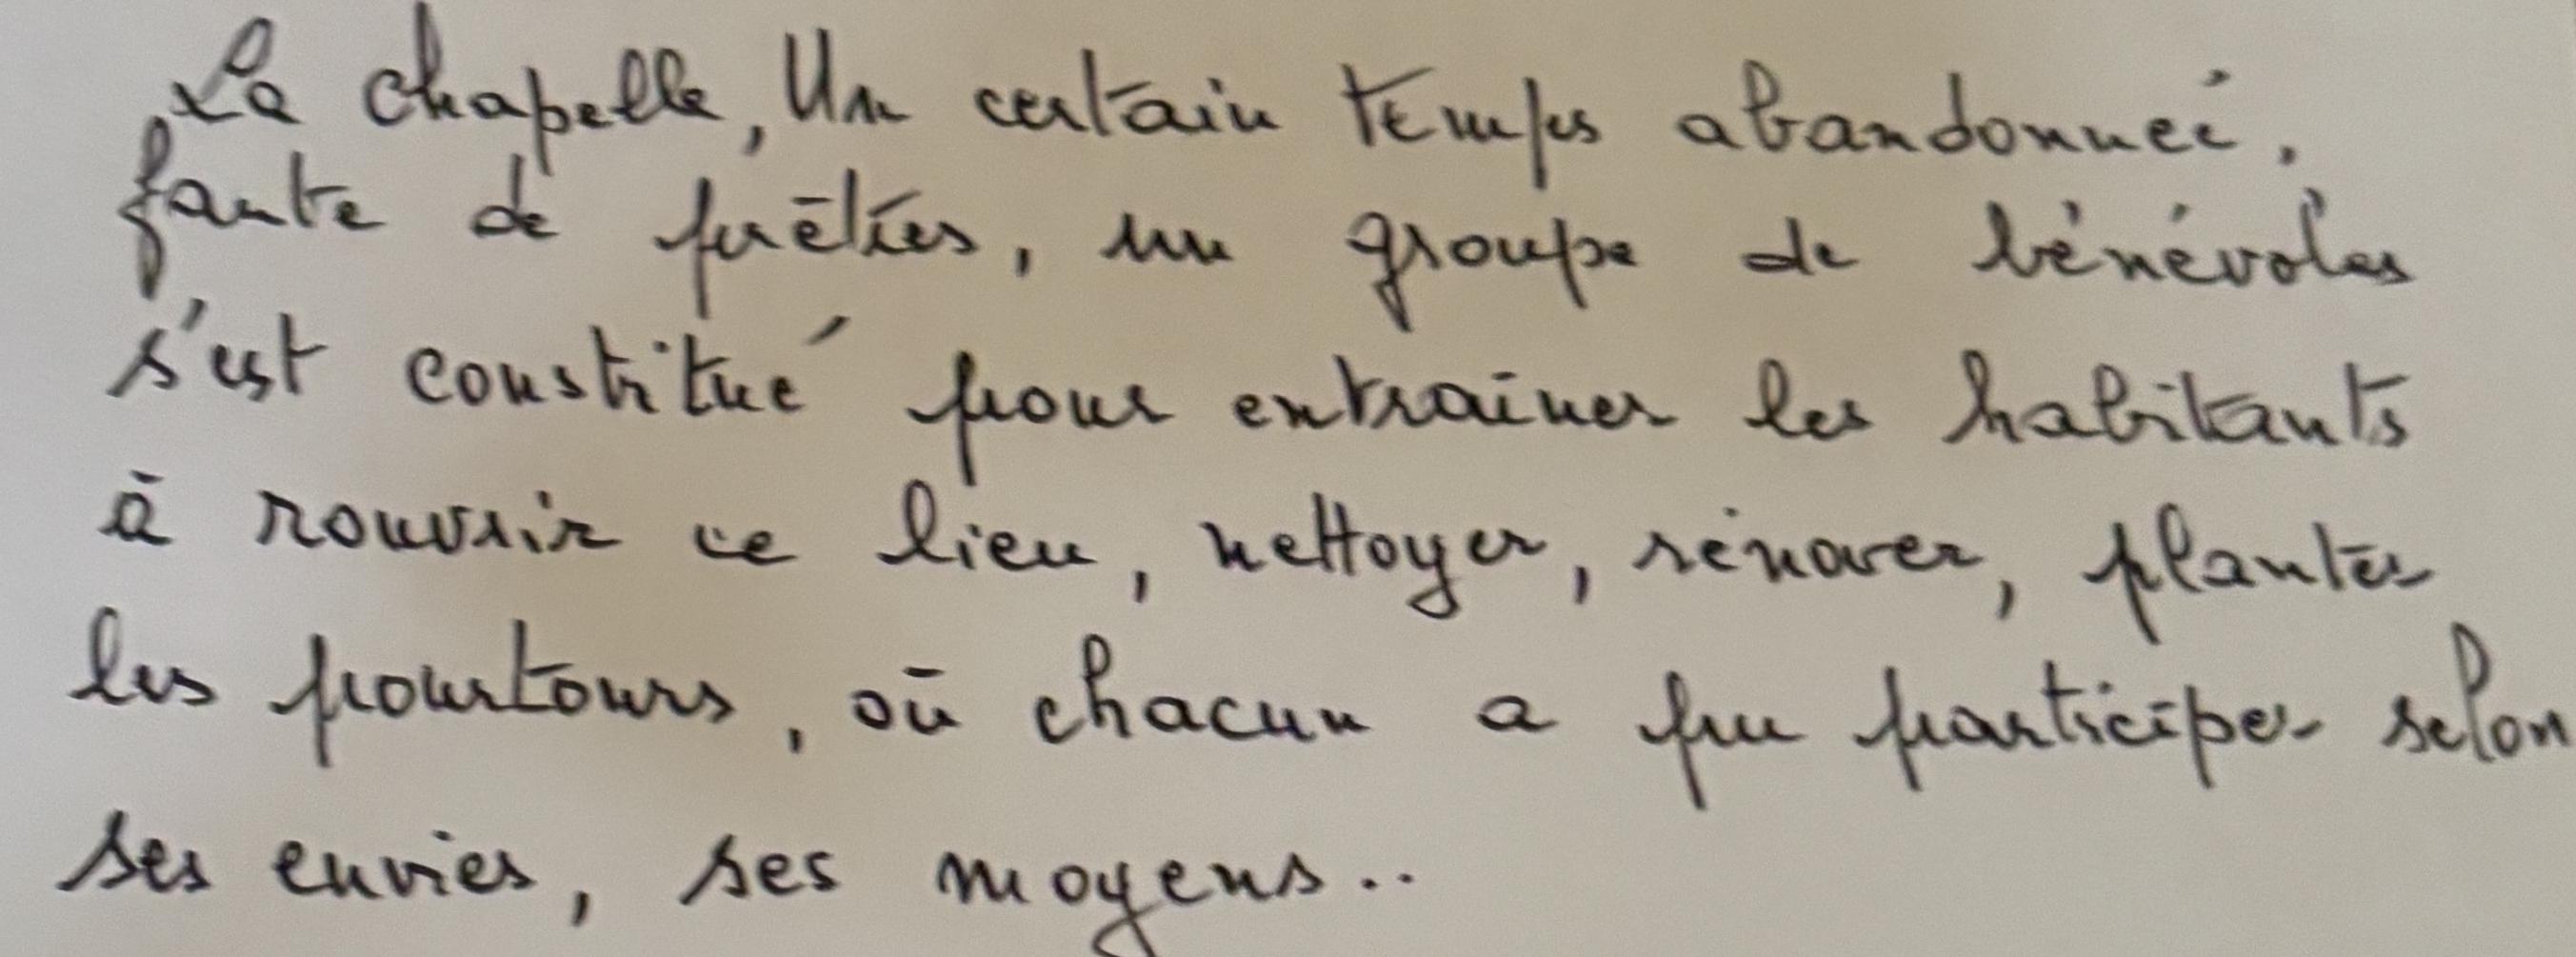 La chapelle, Un certain temps abandonnée,
faute de prêtres, un groupe de bénévoles
s'est constitué pour entraîner les habitants
à rouvrir ce lieu, nettoyer, rénover, planter
les pourtours, où chacun a pu participer selon
ses envies, ses moyens..